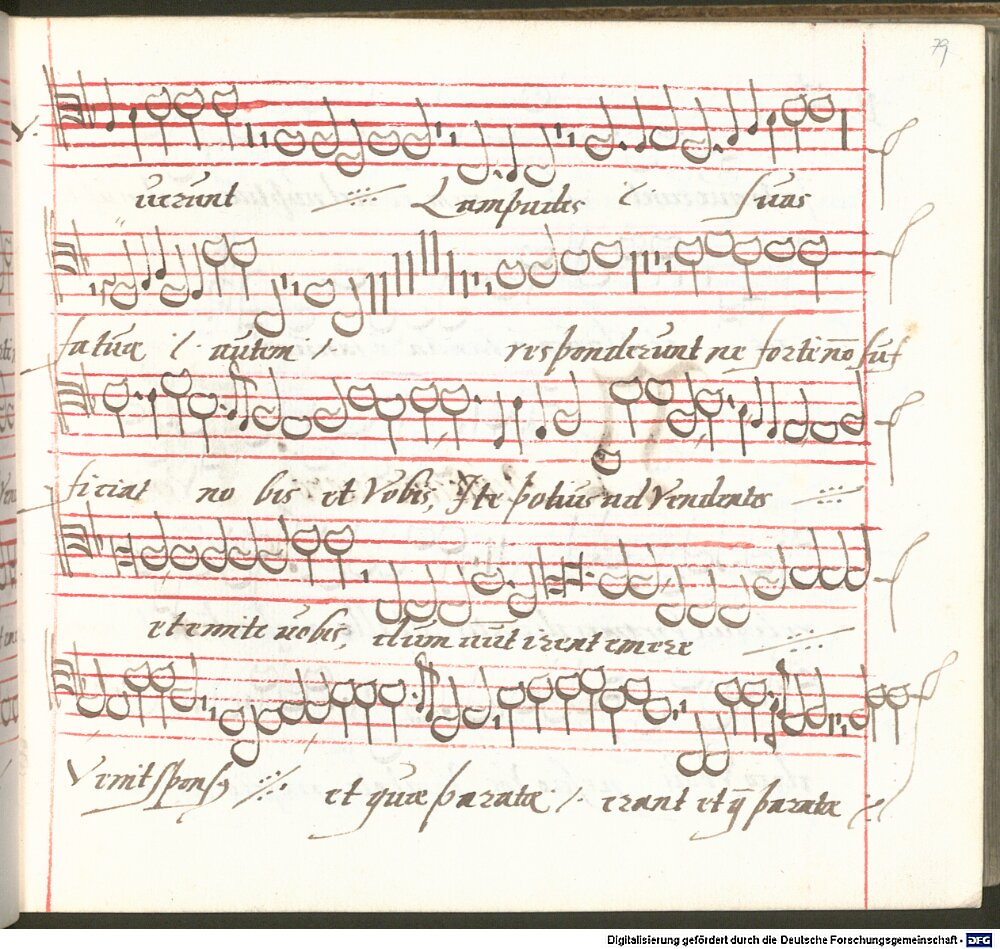 79
V.
uerunt Lampades suas
fatuæ autem responderunt ne forte nō suf
ficiat no bis et Vobis, Ite potius ad Vendentes
et emite uobis, dum aūt irent emere
Venit sponsꝯ et quæ paratæ erant et q̄ paratæ
Digitalisierung gefördert durch die Deutsche Forschungsgemeinschaft - DFG